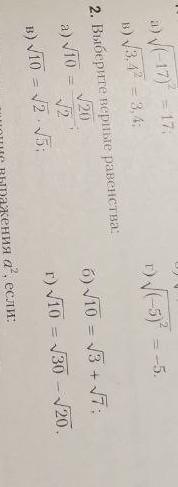 а) √(-17)² = 17;
в) √3,4² = 3,4;
г) √(-5)² = -5.
2. Выберите верные равенства:
а) √10 = √20/√2;
б) √10 = √3 + √7;
в) √10 = √2 · √5;
г) √10 = √30 - √20.
выражения a², если: